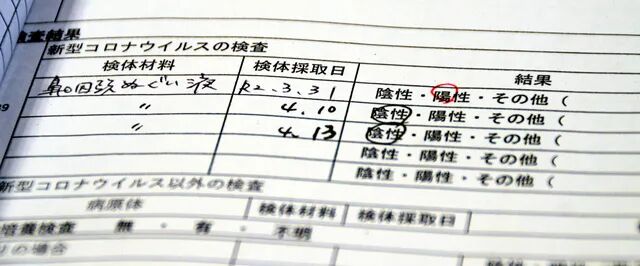 検査結果
新型コロナウイルスの検査
検体材料 検体採取日 結果
鼻咽頭ぬぐい液 R2.3.31 陰性・陽性・その他(
〃 4.10 陰性・陽性・その他(
〃 4.13 陰性・陽性・その他(
陰性・陽性・その他(
陰性・陽性・その他(
新型コロナウイルス以外の検査
病原体 検体材料 検体採取日
培養検査 無・有・不明
りの場合